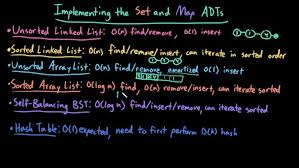 Implementing the Set and Map ADTs
• Unsorted Linked List: O(n) find/remove, O(1) insert
• Sorted Linked List: O(n) find/remove/insert, can iterate in sorted order
• Unsorted Array List: O(n) find/remove, amortized O(1) insert
• Sorted Array List: O(log n) find, O(n) remove/insert, can iterate sorted
• Self-Balancing BST: O(log n) find/insert/remove, can iterate sorted
• Hash Table: O(1) expected, need to first perform O(k) hash